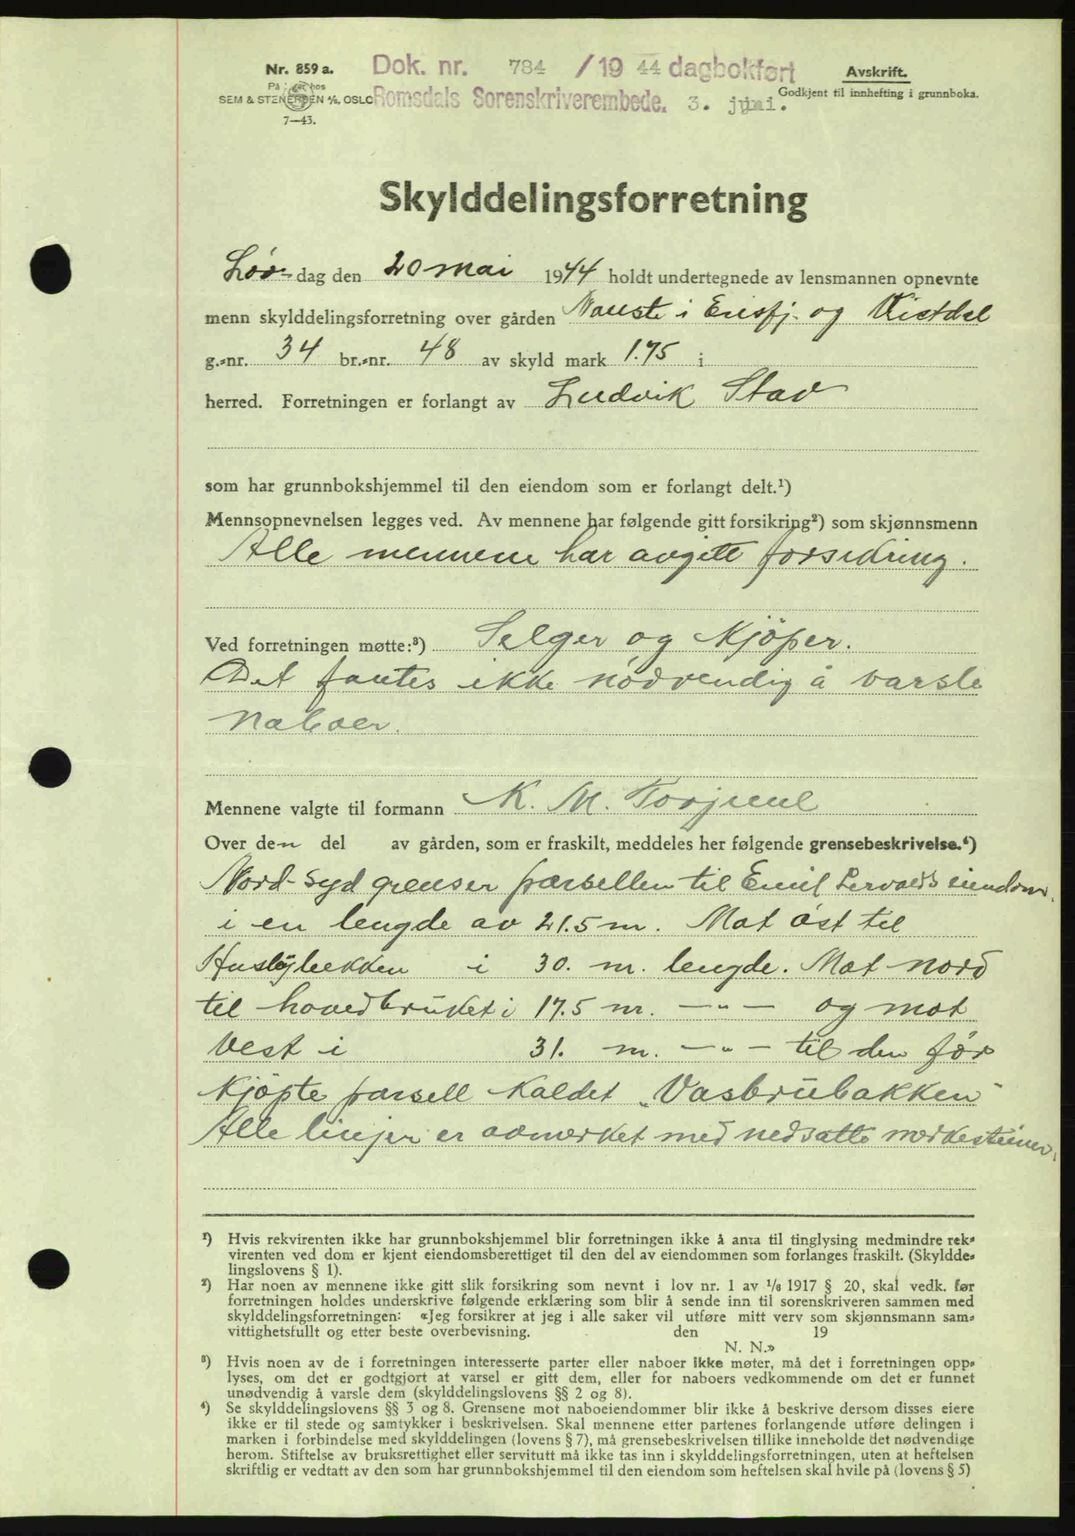 Nr. 859 a.
På lager hos
SEM & STENERSEN A/S, OSLO
7—43.
Dok. nr. 784 /19 44 dagbokført
Romsdals Sorenskriverembede. 3. juni.
Avskrift.
Godkjent til innhefting i grunnboka.
Skylddelingsforretning
Lør-dag den 20 mai 1944 holdt undertegnede av lensmannen opnevnte
menn skylddelingsforretning over gården Nauste i Erisfj. og Vistdal
g.-nr. 34 br.-nr. 48 av skyld mark 1.75 i
herred. Forretningen er forlangt av Ludvik Stav
som har grunnbokshjemmel til den eiendom som er forlangt delt.¹)
Mennsopnevnelsen legges ved. Av mennene har følgende gitt forsikring²) som skjønnsmenn
Alle mennene har avgitt forsikring.
Ved forretningen møtte:³) Selger og Kjöper.
Det fantes ikke nödvendig å varsle
naboer.
Mennene valgte til formann K. M. Torjuul
Over den del av gården, som er fraskilt, meddeles her følgende grensebeskrivelse.⁴)
Nord-syd grenser parsellen til Emil eiendom
i en lengde av 21.5 m. Mot öst til
Husbybekken i 30. m. lengde. Mot nord
til hovedbruket i 17.5 m. —„— og mot
Vest i 31. m. —„— til den før
kjöpte parsell kaldet „Vasbrubakken"
Alle linjer er avmerket med nedsatte merkestener.
¹) Hvis rekvirenten ikke har grunnbokshjemmel blir forretningen ikke å anta til tinglysing medmindre rek-
virenten ved dom er kjent eiendomsberettiget til den del av eiendommen som forlanges fraskilt. (Skyldde-
lingslovens § 1).
²) Har noen av mennene ikke gitt slik forsikring som nevnt i lov nr. 1 av 1/6 1917 § 20, skal vedk. før
forretningen holdes underskrive følgende erklæring som blir å sende inn til sorenskriveren sammen med
skylddelingsforretningen: «Jeg forsikrer at jeg i alle saker vil utføre mitt verv som skjønnsmann sam-
vittighetsfullt og etter beste overbevisning. den 19
N. N.»
³) Hvis noen av de i forretningen interesserte parter eller naboer ikke møter, må det i forretningen opp-
lyses, om det er godtgjort at varsel er gitt dem, eller for naboers vedkommende om det er funnet
unødvendig å varsle dem (skylddelingslovens §§ 2 og 8).
⁴) Se skylddelingslovens §§ 3 og 8. Grensene mot naboeiendommer blir ikke å beskrive dersom disses eiere
ikke er til stede og samtykker i beskrivelsen. Skal mennene etter partenes forlangende utføre delingen i
marken i forbindelse med skylddelingen (lovens § 7), må grensebeskrivelsen tillike inneholde det nødvendige
herom. Stiftelse av bruksrettighet eller servitutt må ikke tas inn i skylddelingsforretningen, uten at heftelsen
skriftlig er vedtatt av den som har grunnbokshjemmel til den eiendom som heftelsen skal hvile på (lovens § 5)